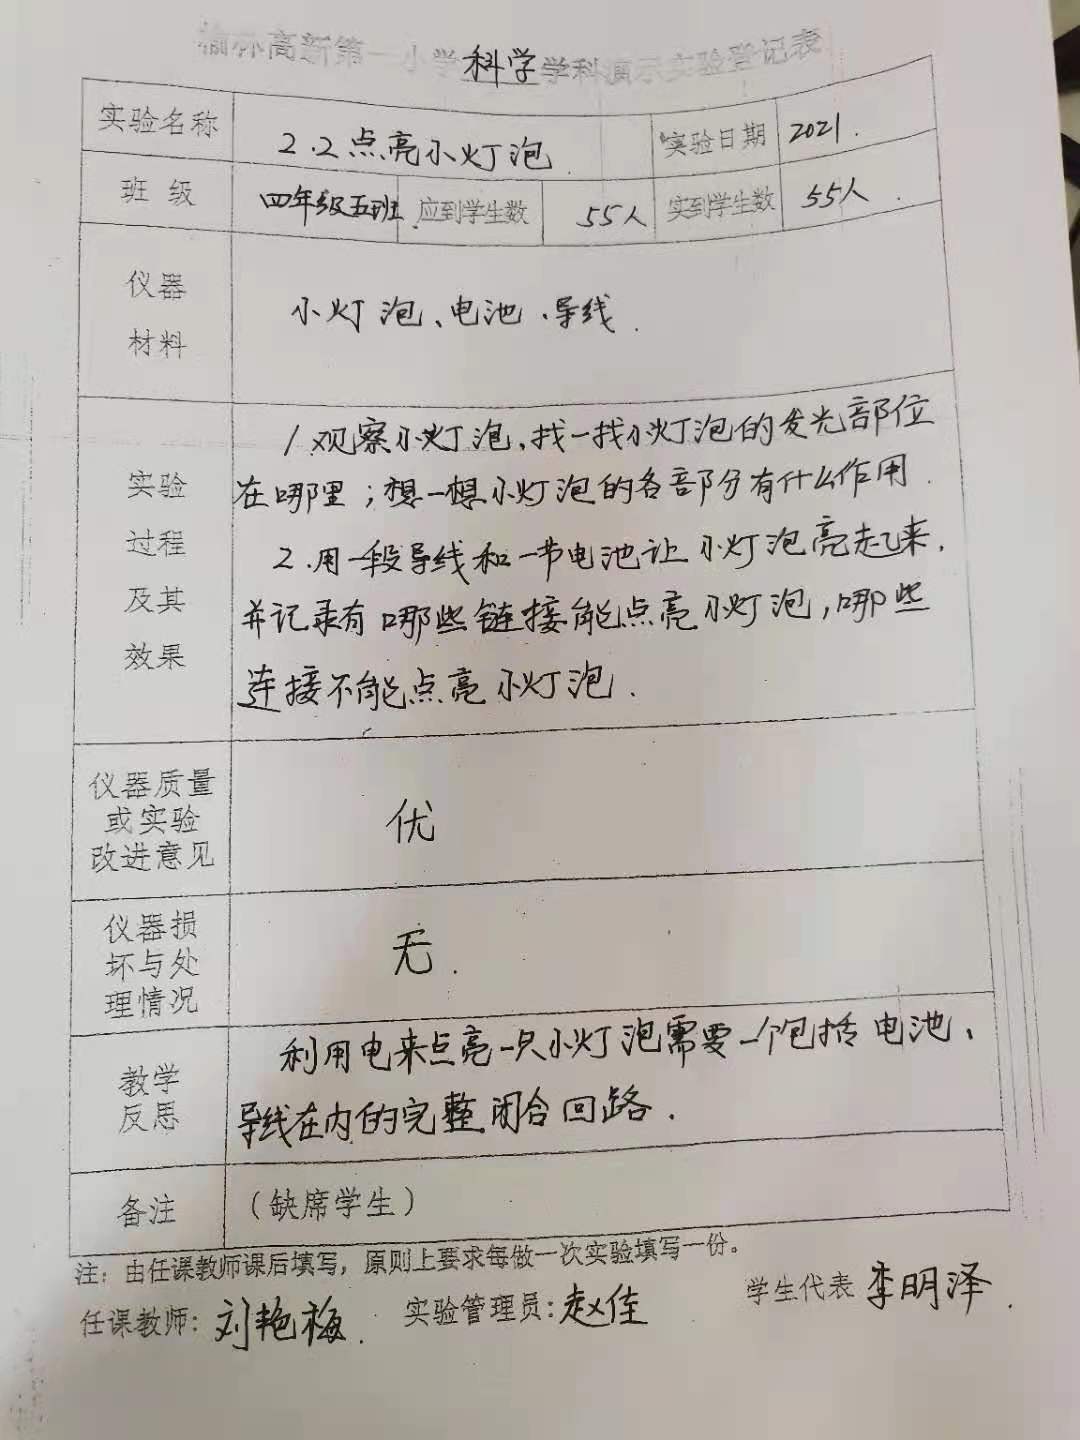 榆林高新第一小学科学学科演示实验登记表
实验名称 2.2点亮小灯泡 实验日期 2021.
班级 四年级五班 应到学生数 55人 实到学生数 55人.
仪器
材料
小灯泡、电池、导线.
实验
过程
及其
效果
1.观察小灯泡,找一找小灯泡的发光部位
在哪里;想一想小灯泡的各部分有什么作用.
2.用一段导线和一节电池让小灯泡亮起来,
并记录有哪些链接能点亮小灯泡,哪些
连接不能点亮小灯泡.
仪器质量
或实验
改进意见
优
仪器损
坏与处
理情况
无.
教学
反思
利用电来点亮一只小灯泡需要一个包括电池、
导线在内的完整闭合回路.
备注 (缺席学生)
注:由任课教师课后填写,原则上要求每做一次实验填写一份。
任课教师:刘艳梅. 实验管理员:赵佳 学生代表 李明泽.